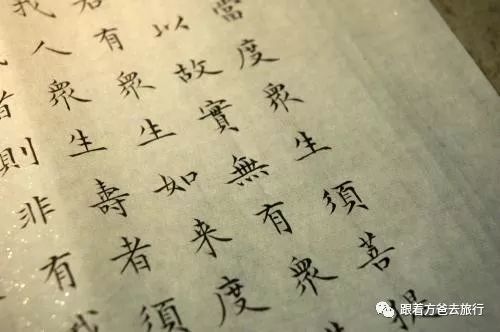 當度衆生須菩提
以故實無有衆
有衆生如来度
我人衆生壽者須
則非有我
跟着方爸去旅行